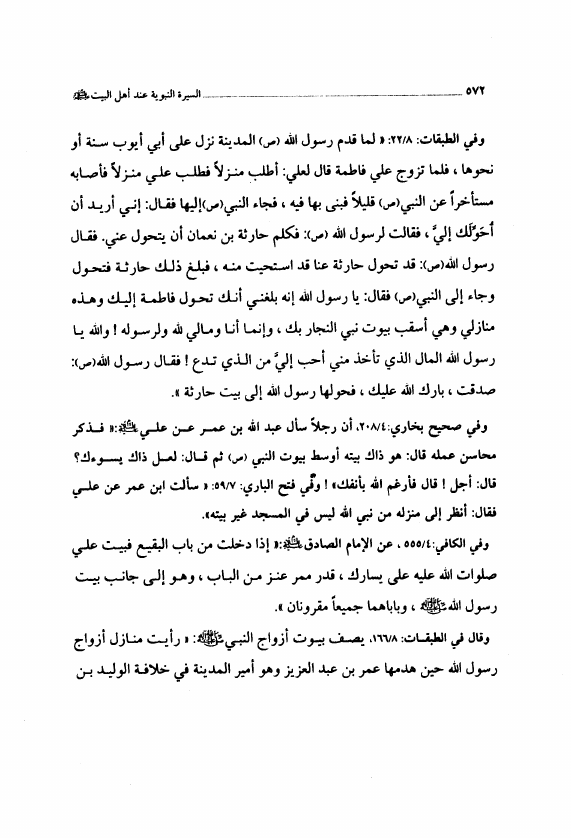 ٥٧٢ السيرة النبوية عند أهل البيت
وفي الطبقات: ٢٢/٨: « لما قدم رسول الله (ص) المدينة نزل على أبي أيوب سنة أو
نحوها ، فلما تزوج علي فاطمة قال لعلي: أطلب منزلاً فطلب علي منزلاً فأصابه
مستأخراً عن النبي(ص) قليلاً فبنى بها فيه ، فجاء النبي(ص)إليها فقال: إني أريد أن
أحَوِّلك إليَّ ، فقالت لرسول الله (ص): فكلم حارثة بن نعمان أن يتحول عني. فقال
رسول الله(ص): قد تحول حارثة عنا قد استحيت منه ، فبلغ ذلك حارثة فتحول
وجاء إلى النبي(ص) فقال: يا رسول الله إنه بلغني أنك تحول فاطمة إليك وهذه
منازلي وهي أسقب بيوت نبي النجار بك ، وإنما أنا ومالي لله ولرسوله ! والله يا
رسول الله المال الذي تأخذ مني أحب إليَّ من الذي تدع ! فقال رسول الله(ص):
صدقت ، بارك الله عليك ، فحولها رسول الله إلى بيت حارثة ».
وفي صحيح بخاري:٢٠٨/٤، أن رجلاً سأل عبد الله بن عمر عن علي :« فذكر
محاسن عمله قال: هو ذاك بيته أوسط بيوت النبي (ص) ثم قال: لعل ذاك يسوءك؟
قال: أجل ! قال فأرغم الله بأنفك» ! وفي فتح الباري: ٥٩/٧: « سألت ابن عمر عن علي
فقال: أنظر إلى منزله من نبي الله ليس في المسجد غير بيته».
وفي الكافي:٥٥٥/٤ ، عن الإمام الصادق :« إذا دخلت من باب البقيع فبيت علي
صلوات الله عليه على يسارك ، قدر ممر عنز من الباب ، وهو إلى جانب بيت
رسول الله ، وباباهما جميعاً مقرونان ».
وقال في الطبقات: ١٦٦/٨، يصف بيوت أزواج النبي : « رأيت منازل أزواج
رسول الله حين هدمها عمر بن عبد العزيز وهو أمير المدينة في خلافة الوليد بن